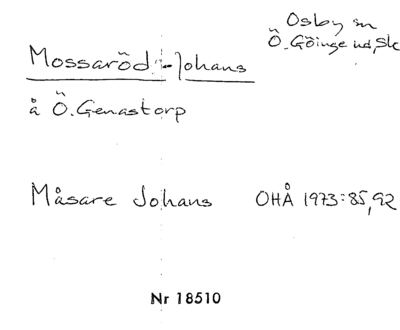 Osby sn
Ö. Göinge hd, Sk
Mossaröd-Johans
å Ö. Genastorp
Måsare Johans OHÅ 1973:85,92
Nr 18510